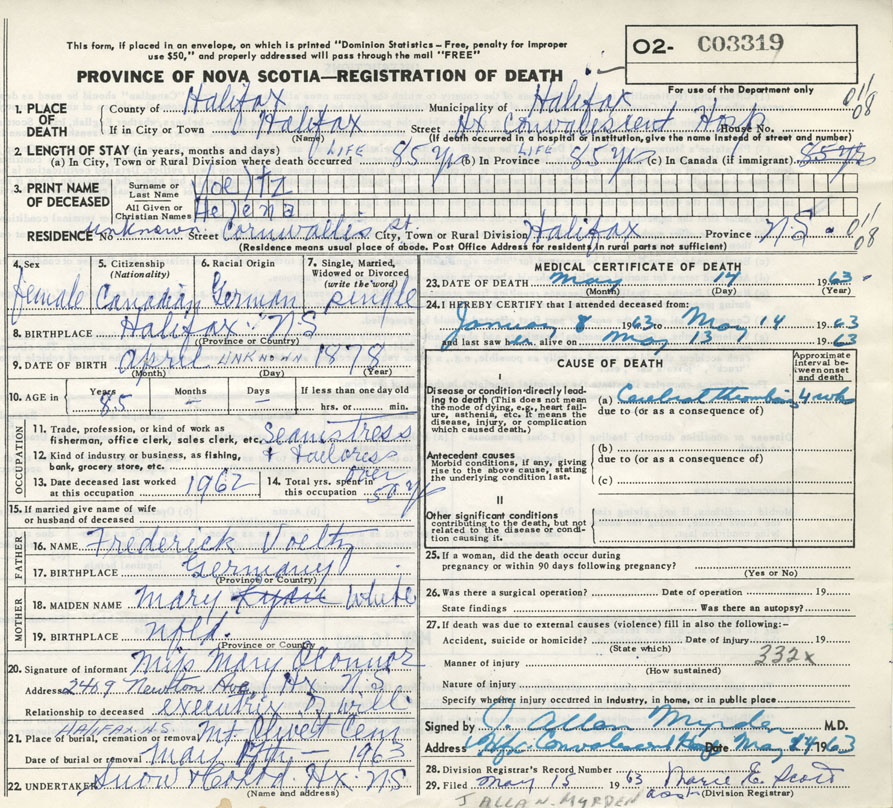 This form, if placed in an envelope, on which is printed "Dominion Statistics – Free, penalty for improper
use $50," and properly addressed will pass through the mail "FREE"
PROVINCE OF NOVA SCOTIA—REGISTRATION OF DEATH
02- C03319
For use of the Department only
1. PLACE OF DEATH
County of Halifax Municipality of Halifax
If in City or Town Halifax Street Hx Convalescent Hosp House No.
(Name) (If death occurred in a hospital or institution, give the name instead of street and number)
018
2. LENGTH OF STAY (in years, months and days)
(a) In City, Town or Rural Division where death occurred LIFE 85 yrs (b) In Province LIFE 85 yrs (c) In Canada (if immigrant) 85 yrs
3. PRINT NAME OF DECEASED
Surname or Last Name Voeltz
All Given or Christian Names Helena
RESIDENCE No unknown Street Cornwallis st City, Town or Rural Division Halifax Province N.S. 018
(Residence means usual place of abode. Post Office Address for residents in rural parts not sufficient)
4. Sex female
5. Citizenship (Nationality) Canadian
6. Racial Origin German
7. Single, Married, Widowed or Divorced (write the word) single
8. BIRTHPLACE Halifax N.S
(Province or Country)
9. DATE OF BIRTH April UNKNOWN 1878
(Month) (Day) (Year)
10. AGE in Years 85 Months – Days – If less than one day old
hrs. or min.
OCCUPATION
11. Trade, profession, or kind of work as fisherman, office clerk, sales clerk, etc. Seamstress
12. Kind of industry or business, as fishing, bank, grocery store, etc. + tailoress
13. Date deceased last worked at this occupation 1962
14. Total yrs. spent in this occupation over 50 y
15. If married give name of wife or husband of deceased
FATHER
16. NAME Frederick Voeltz
17. BIRTHPLACE Germany
(Province or Country)
MOTHER
18. MAIDEN NAME Mary White
19. BIRTHPLACE Nfld.
(Province or Country)
20. Signature of informant Mrs Mary O'Connor
Address 2469 Newton Ave, Hx N.S
Relationship to deceased executrix of will
HALIFAX N.S.
21. Place of burial, cremation or removal Mt Olivet Cem
Date of burial or removal May 17th – 1963
22. UNDERTAKER Snow & Co Ltd. Hx. NS
(Name and address)
MEDICAL CERTIFICATE OF DEATH
23. DATE OF DEATH May 14 1963
(Month) (Day) (Year)
24. I HEREBY CERTIFY that I attended deceased from:
January 8 1963 to May 14 1963
and last saw her alive on May 13 1963
CAUSE OF DEATH
Approximate interval between onset and death
I
Disease or condition directly leading to death (This does not mean the mode of dying, e.g., heart failure, asthenia, etc. It means the disease, injury, or complication which caused death.)
(a) Cerebral thrombosis 4 wks
due to (or as a consequence of)
Antecedent causes
Morbid conditions, if any, giving rise to the above cause, stating the underlying condition last.
(b)
due to (or as a consequence of)
(c)
II
Other significant conditions
contributing to the death, but not related to the disease or condition causing it.
25. If a woman, did the death occur during
pregnancy or within 90 days following pregnancy?
(Yes or No)
26. Was there a surgical operation? Date of operation 19
State findings Was there an autopsy?
27. If death was due to external causes (violence) fill in also the following:-
Accident, suicide or homicide? Date of injury 19
(State which)
332x
Manner of injury
(How sustained)
Nature of injury
Specify whether injury occurred in industry, in home, or in public place
Signed by J. Allan Myrden M.D.
Address Hfx. Convalescent Hosp Date May 14 1963
28. Division Registrar's Record Number
29. Filed May 15 1963 Marie E. Scott
asst. (Division Registrar)
J ALLAN MYRDEN